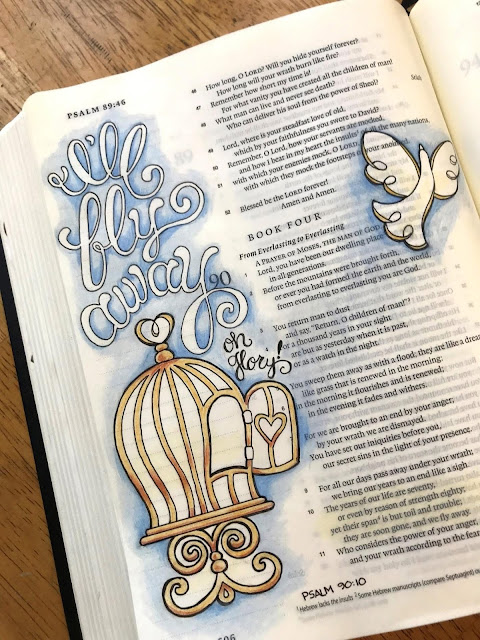 PSALM 89:46
I'll
fly
away
oh
glory!
46 How long, O LORD? Will you hide yourself forever?
How long will your wrath burn like fire?
47 Remember how short my time is!
For what vanity you have created all the children of man!
48 What man can live and never see death?
Who can deliver his soul from the power of Sheol? Selah
49 Lord, where is your steadfast love of old,
which by your faithfulness you swore to David?
50 Remember, O Lord, how your servants are mocked,
and how I bear in my heart the insults of all the many nations,
51 with which your enemies mock, O LORD,
with which they mock the footsteps of your anointed.
52 Blessed be the LORD forever!
Amen and Amen.
BOOK FOUR
From Everlasting to Everlasting
A PRAYER OF MOSES, THE MAN OF GOD.
90 Lord, you have been our dwelling place
in all generations.
2 Before the mountains were brought forth,
or ever you had formed the earth and the world,
from everlasting to everlasting you are God.
3 You return man to dust
and say, "Return, O children of man!"
For a thousand years in your sight
are but as yesterday when it is past,
or as a watch in the night.
You sweep them away as with a flood; they are like a dream,
like grass that is renewed in the morning:
in the morning it flourishes and is renewed;
in the evening it fades and withers.
For we are brought to an end by your anger;
by your wrath we are dismayed.
You have set our iniquities before you,
our secret sins in the light of your presence.
9 For all our days pass away under your wrath;
we bring our years to an end like a sigh.
10 The years of our life are seventy,
or even by reason of strength eighty;
yet their span is but toil and trouble;
they are soon gone, and we fly away.
11 Who considers the power of your anger,
and your wrath according to the fear
PSALM 90:10
Hebrew lacks the insults 2 Some Hebrew manuscripts (compare Septuagint)